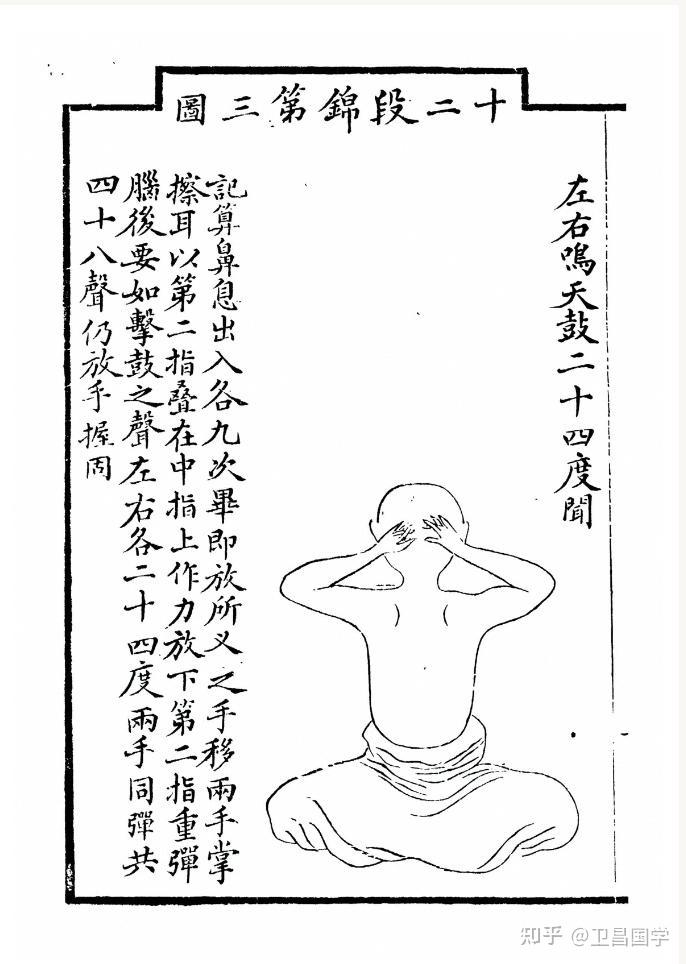 十二段錦第三圖
左右鳴天鼓二十四度聞
記算鼻息出入各九次畢即放所义之手移兩手掌
擦耳以第二指疊在中指上作力放下第二指重彈
腦後要如擊鼓之聲左右各二十四度兩手同彈共
四十八聲仍放手握固
知乎 @卫昌国学